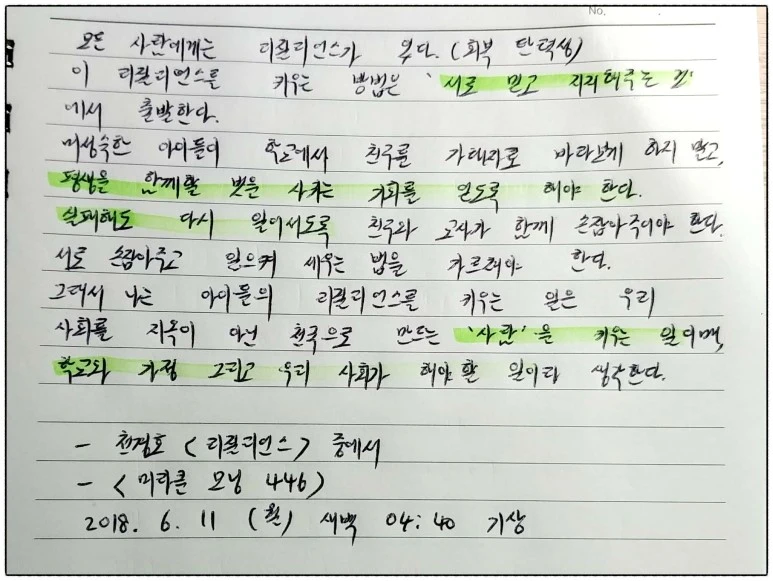 No.
모든 사람에게는 리질리언스가 있다. (회복 탄력성)
이 리질리언스를 키우는 방법은 '서로 믿고 지지해주는 것'
에서 출발한다.
미성숙한 아이들이 학교에서 친구를 가해자로 바라보게 하지 말고,
평생을 함께할 벗을 사귀는 기회를 얻도록 해야 한다.
실패해도 다시 일어서도록 친구와 교사가 함께 손잡아주어야 한다.
서로 손잡아주고 일으켜 세우는 법을 가르쳐야 한다.
그래서 나는 아이들의 리질리언스를 키우는 일은 우리
사회를 지옥이 아닌 천국으로 만드는 '사람'을 키우는 일이며,
학교와 가정 그리고 우리 사회가 해야 할 일이라 생각한다.
- 천경호 <리질리언스> 중에서
- <미라클 모닝 446>
2018. 6. 11 (월) 새벽 04:40 기상